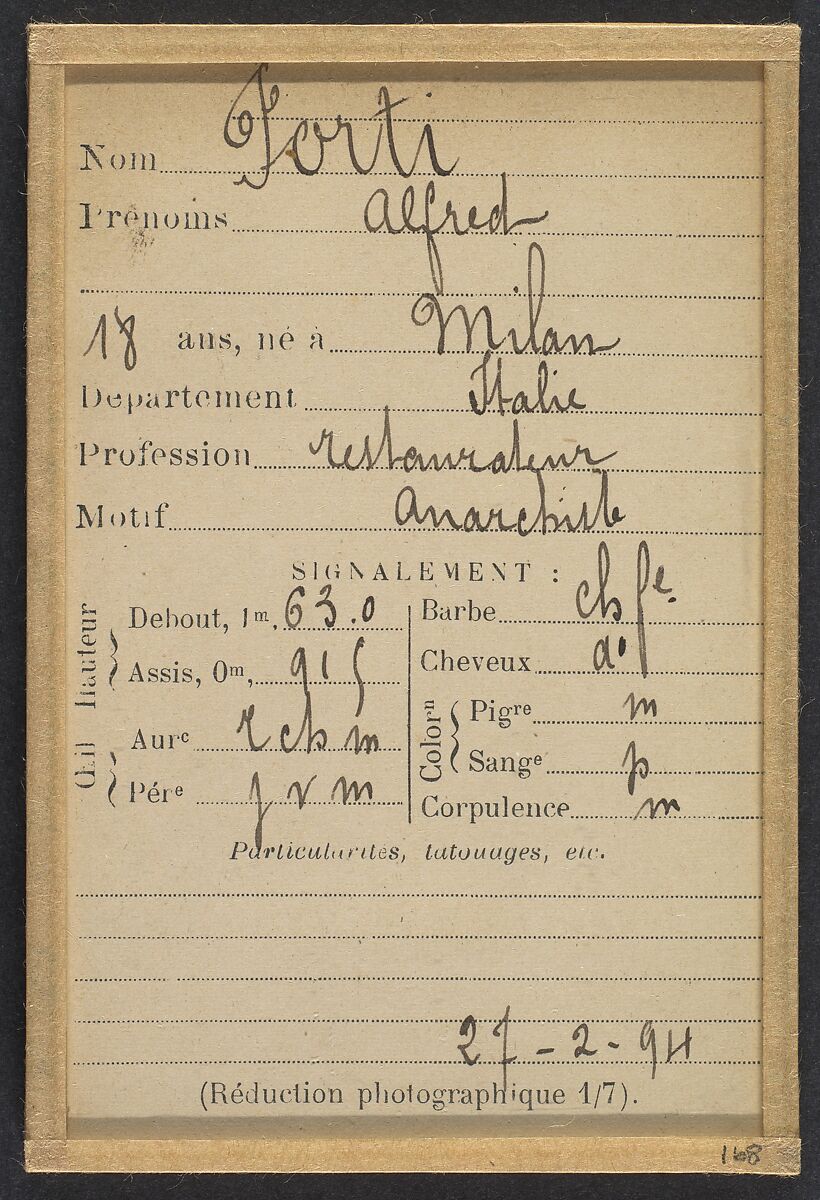 Nom Forti
Prénoms Alfred
18 ans, né à Milan
Département Italie
Profession restaurateur
Motif Anarchiste
SIGNALEMENT :
Hauteur
Debout, 1m, 63.0
Assis, 0m, 915
Œil
Aurᵉ r ch m
Pérᵉ j v m
Barbe ch fᵉ
Cheveux dº
Colorⁿ
Pigrᵉ m
Sangᵉ p
Corpulence m
Particularités, tatouages, etc.
27-2-94
(Réduction photographique 1/7).
168